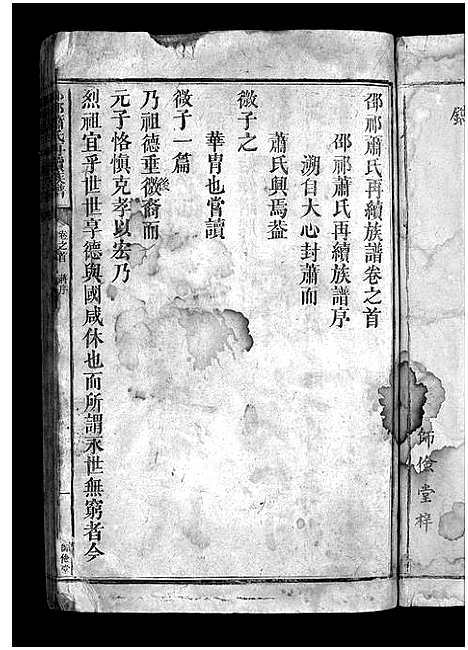 邵祁蕭氏再續族譜卷之首
邵祁蕭氏再續族譜序
溯自大心封蕭而
蕭氏興焉葢
微子之
華胄也嘗讀
微子一篇
乃祖德垂後裔而
元子恪慎克孝以宏乃
烈祖宜乎世世享德與國咸休也而所謂永世無窮者今
卷之首
蔣序
一
師儉堂
師儉堂梓